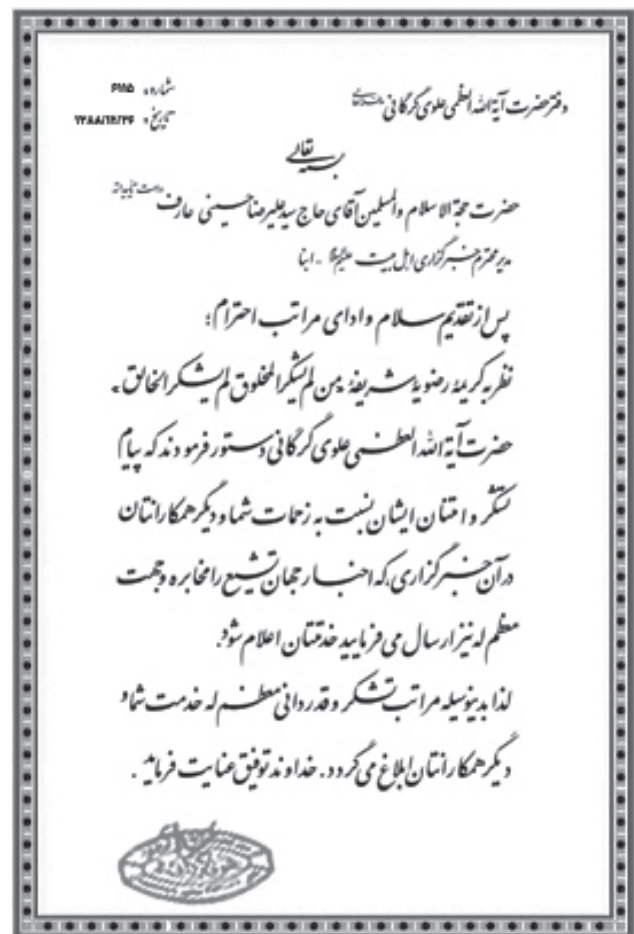 دفتر حضرت آیة الله العظمی علوی گرگانی
شماره: ۶۱۱۵
تاریخ: ۱۳۸۸/۱۲/۲۶
بسمه تعالی
حضرت حجة الاسلام والمسلمین آقای حاج سید علیرضا حسینی عارف دامت تاییداته
مدیر محترم خبرگزاری اهل بیت علیهم السلام - ابنا
پس از تقدیم سلام و ادای مراتب احترام؛
نظر به کریمه رضویه شریفه: من لم یشکر المخلوق لم یشکر الخالق.
حضرت آیة الله العظمی علوی گرگانی دستور فرمودند که پیام
تشکر و امتنان ایشان نسبت به زحمات شما و دیگر همکارانتان
در آن خبرگزاری، که اخبار جهان تشیع را مخابره و جهت
معظم له نیز ارسال می فرمایید خدمتتان اعلام شود.
لذا بدینوسیله مراتب تشکر و قدردانی معظم له خدمت شما و
دیگر همکارانتان ابلاغ می گردد. خداوند توفیق عنایت فرماید.